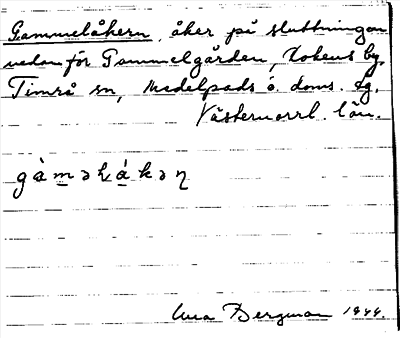 Gammelåkern, åker på sluttningen
nedanför Gammelgården, Lokens by,
Timrå sn, Medelpads ö. doms. sg.
Västernorrl. län.
gàməɭákəɳ
Bergman 1944.